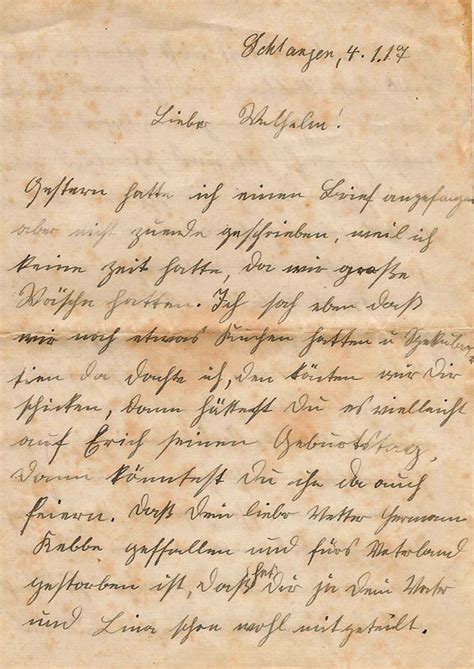 Schlangen, 4.1.17
Lieber Wilhelm!
Gestern hatte ich einen Brief angefangen
aber nicht zuende geschrieben, weil ich
keine Zeit hatte, da wir große
Wäsche hatten. Ich sah eben daß
wir noch etwas Kuchen hatten u Spekula-
tien da dachte ich, den könten wir Dir
schicken, dann hättest Du es vielleicht
auf Erich seinen Geburtstag,
dann könntest Du ihn da auch
feiern. Daß Dein lieber Vetter Hermann
Kebbe gefallen und fürs Vaterland
gestorben ist, daß hat Dir ja Dein Vater
und Lina schon wohl mitgeteilt.